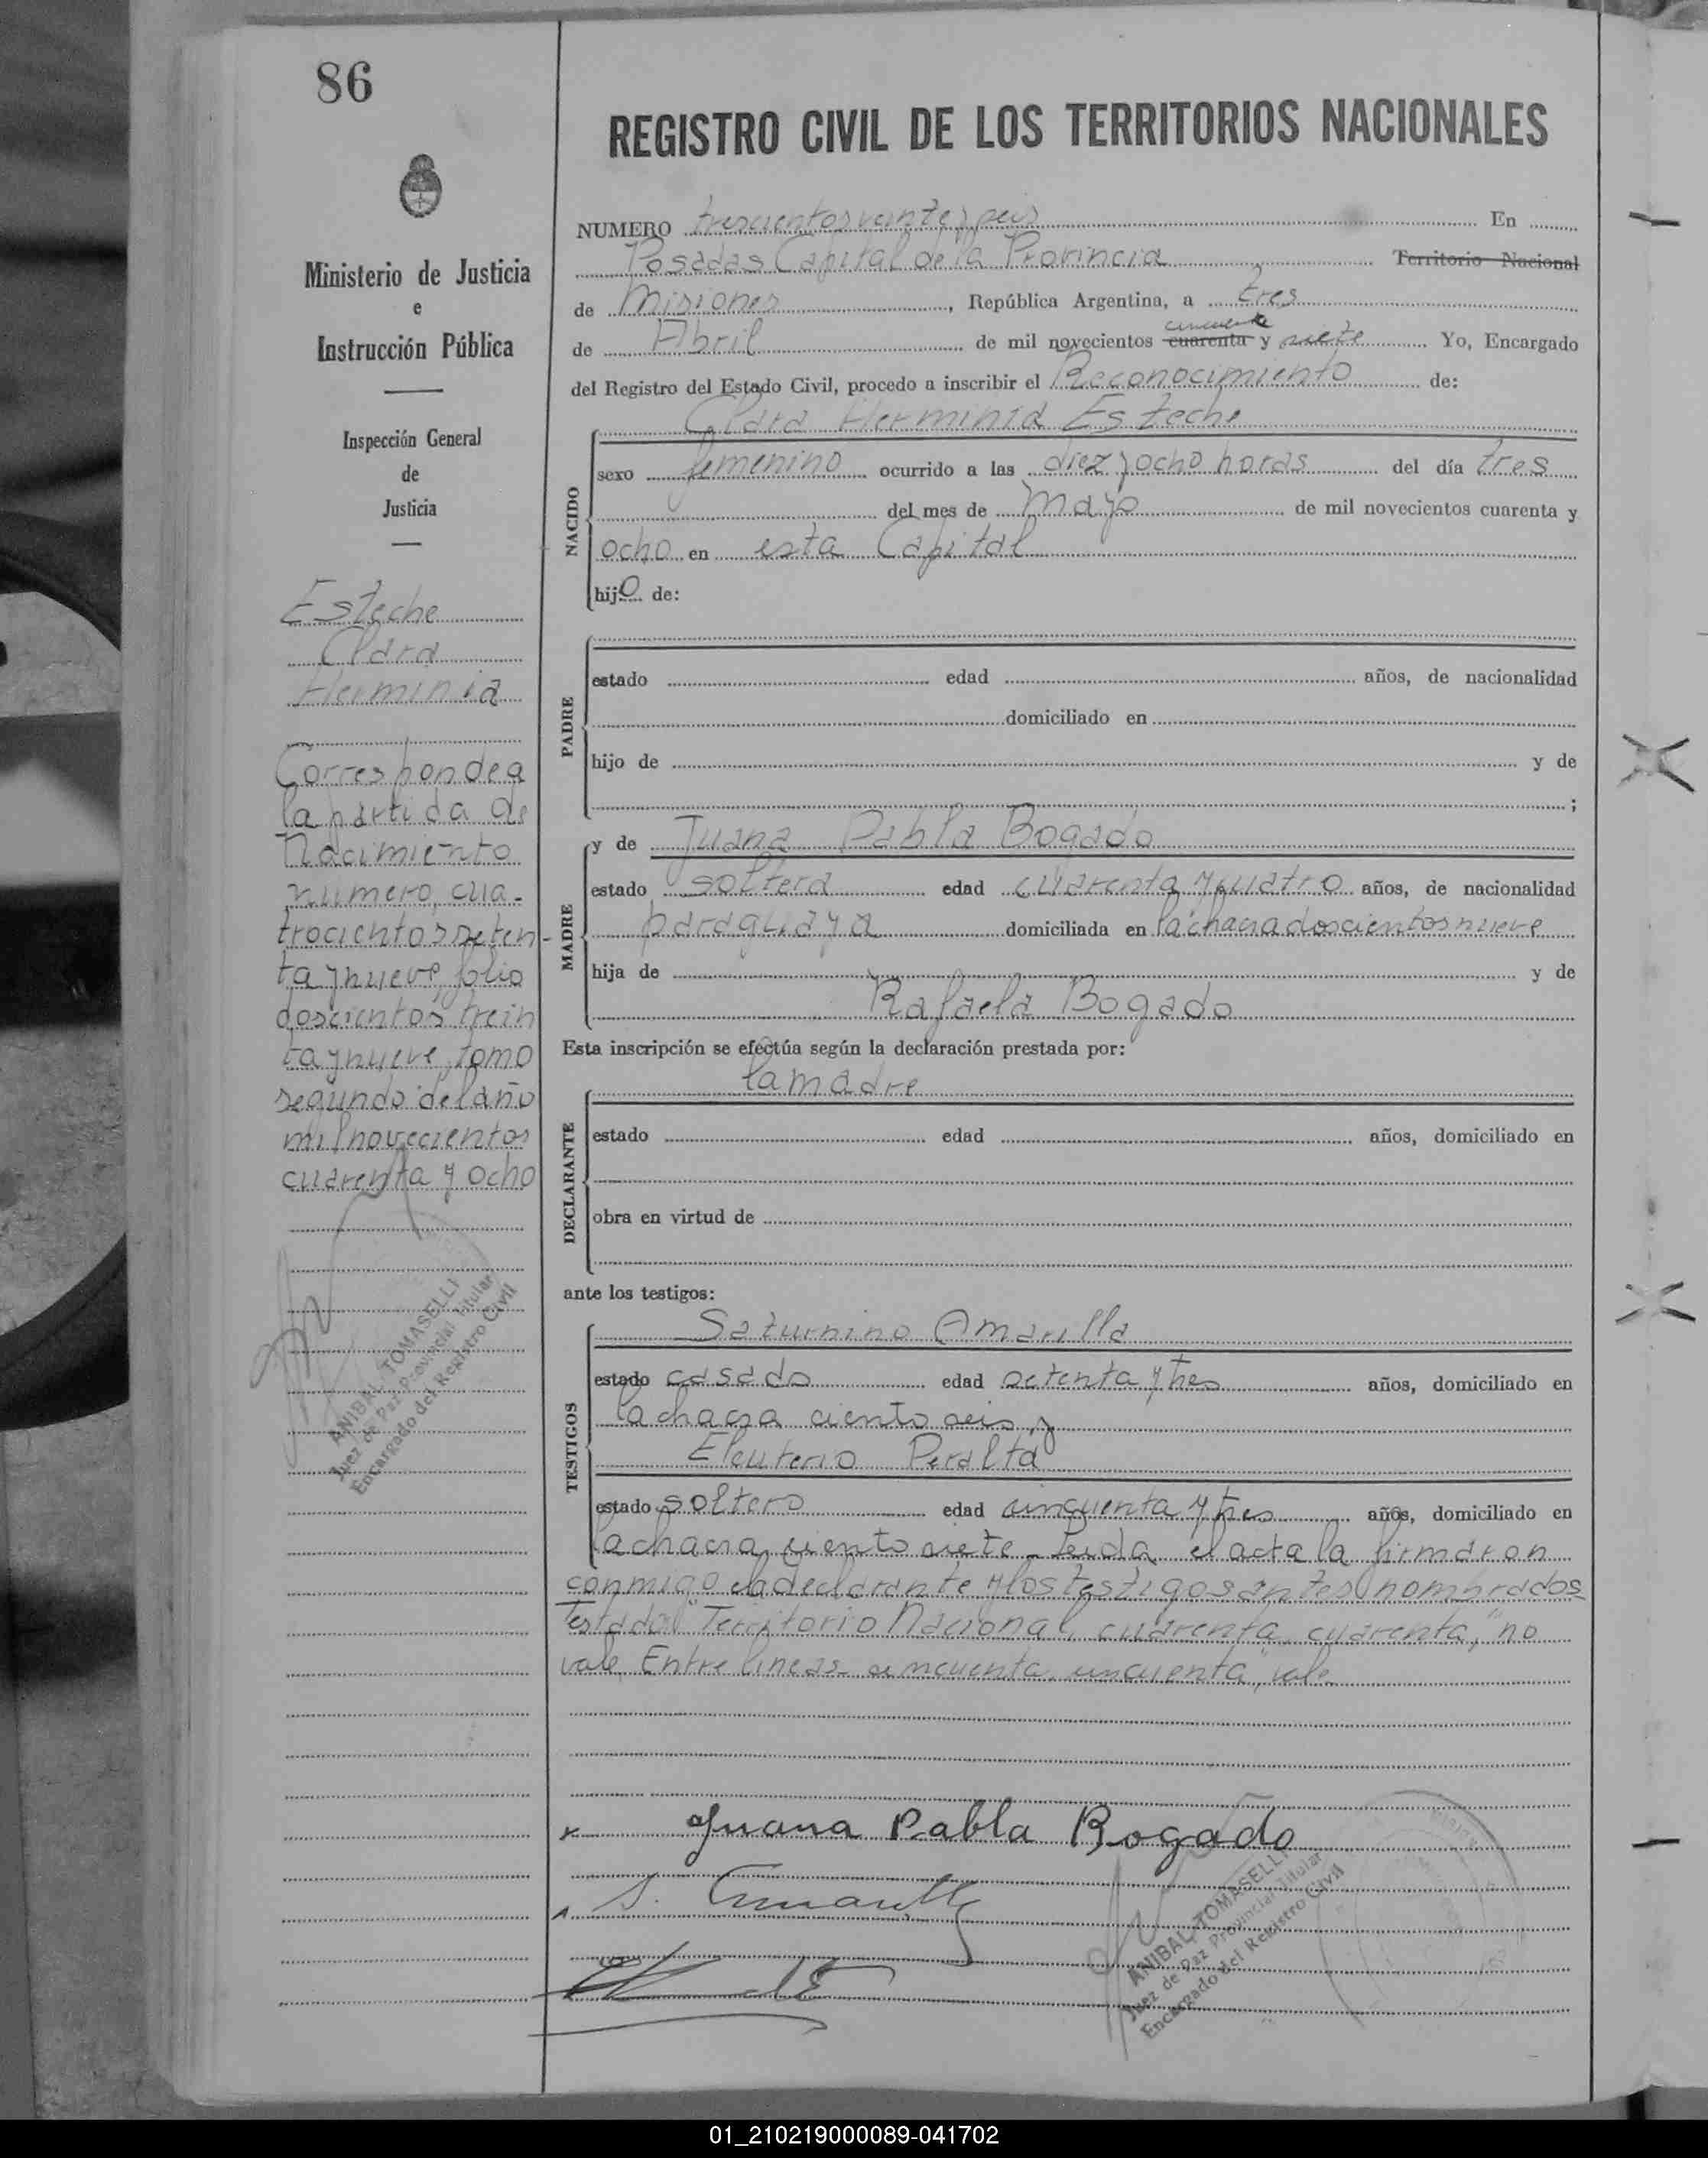 86
Ministerio de Justicia
e
Instrucción Pública
Inspección General
de
Justicia
Esteche
Clara
Herminia
Corresponde a
la partida de
Nacimiento
numero, cua-
trocientos seten-
ta y nueve, folio
doscientos trein
ta y nueve, tomo
segundo del año
mil novecientos
cuarenta y ocho
ANIBAL TOMASELLI
Juez de Paz Provincial Titular
Encargado del Registro Civil
REGISTRO CIVIL DE LOS TERRITORIOS NACIONALES
NUMERO trescientos veinte y seis En
Posadas Capital de la Provincia Territorio Nacional
de Misiones, República Argentina, a tres
de Abril de mil novecientos cuarenta cincuenta y siete Yo, Encargado
del Registro del Estado Civil, procedo a inscribir el Reconocimiento de:
Clara Herminia Esteche
NACIDO
sexo femenino ocurrido a las diez y ocho horas del día tres
del mes de Mayo de mil novecientos cuarenta y
ocho en esta Capital
hijo de:
PADRE
estado edad años, de nacionalidad
domiciliado en
hijo de y de
;
MADRE
y de Juana Pabla Bogado
estado soltera edad cuarenta y cuatro años, de nacionalidad
paraguaya domiciliada en la chacra doscientos nueve
hija de y de
Rafaela Bogado
Esta inscripción se efectúa según la declaración prestada por:
DECLARANTE
la madre
estado edad años, domiciliado en
obra en virtud de
ante los testigos:
TESTIGOS
Saturnino Amarilla
estado casado edad setenta y tres años, domiciliado en
la chacra ciento seis y
Eleuterio Peralta
estado soltero edad cincuenta y tres años, domiciliado en
la chacra ciento siete - Leida el acta la firmaron
conmigo la declarante y los testigos antes nombrados
Testado: "Territorio Nacional, cuarenta, cuarenta," no
vale Entre lineas - cincuenta, cincuenta", vale
Juana Pabla Bogado
S. Amarilla
ANIBAL TOMASELLI
Juez de Paz Provincial Titular
Encargado del Registro Civil
01_210219000089-041702